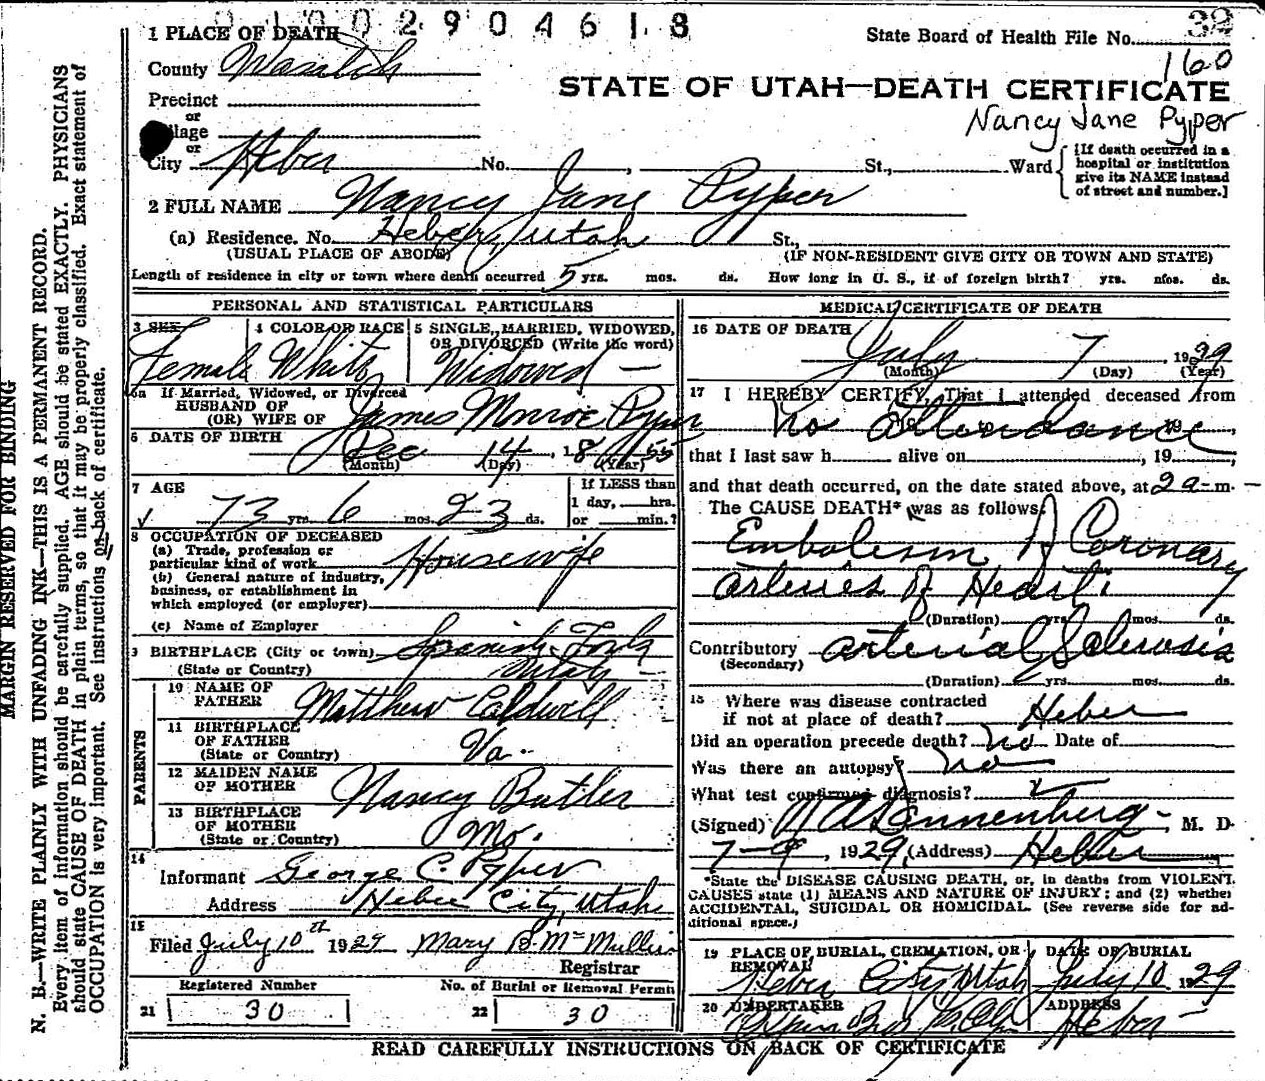 2 1 0 0 2 9 0 4 6 1 8
32
1 PLACE OF DEATH
State Board of Health File No.
160
County Wasatch
STATE OF UTAH—DEATH CERTIFICATE
Precinct
or
Village
Nancy Jane Pyper
or
City Heber No. , St., Ward
[If death occurred in a
hospital or institution
give its NAME instead
of street and number.]
2 FULL NAME Nancy Jane Pyper
(a) Residence. No. Heber, Utah St.,
(USUAL PLACE OF ABODE) (IF NON-RESIDENT GIVE CITY OR TOWN AND STATE)
Length of residence in city or town where death occurred 5 yrs. mos. ds. How long in U. S., if of foreign birth? yrs. mos. ds.
PERSONAL AND STATISTICAL PARTICULARS
3 SEX 4 COLOR OR RACE 5 SINGLE, MARRIED, WIDOWED,
OR DIVORCED (Write the word)
Female White Widowed
5a If Married, Widowed, or Divorced
HUSBAND OF
(OR) WIFE OF James Monroe Pyper
6 DATE OF BIRTH Dec 14, 1855
(Month) (Day) (Year)
7 AGE If LESS than
1 day, hrs.
73 yrs. 6 mos. 23 ds. or min.?
8 OCCUPATION OF DECEASED
(a) Trade, profession or
particular kind of work Housewife
(b) General nature of industry,
business, or establishment in
which employed (or employer)
(c) Name of Employer
9 BIRTHPLACE (City or town) Spanish Fork
(State or Country) Utah
PARENTS
10 NAME OF
FATHER Matthew Caldwell
11 BIRTHPLACE
OF FATHER
(State or Country) Va.
12 MAIDEN NAME
OF MOTHER Nancy Butler
13 BIRTHPLACE
OF MOTHER
(State or Country) Mo.
14
Informant George C. Pyper
Address Heber City, Utah
15
Filed July 10th 1929 Mary B. McMullin
Registrar
Registered Number No. of Burial or Removal Permit
21 30 22 30
MEDICAL CERTIFICATE OF DEATH
16 DATE OF DEATH
July 7, 1929
(Month) (Day) (Year)
17 I HEREBY CERTIFY, That I attended deceased from
No attendance
19 to 19
that I last saw h alive on , 19 ,
and that death occurred, on the date stated above, at 2 a-m.
The CAUSE DEATH* was as follows:
Embolism of Coronary
arteries of Heart.
(Duration) yrs. mos. ds.
Contributory arterial Sclerosis
(Secondary)
(Duration) yrs. mos. ds.
18 Where was disease contracted
if not at place of death? Heber
Did an operation precede death? no Date of
Was there an autopsy? no
What test confirmed diagnosis?
(Signed) , M. D.
7-9, 1929, (Address) Heber
*State the DISEASE CAUSING DEATH, or, in deaths from VIOLENT
CAUSES state (1) MEANS AND NATURE OF INJURY; and (2) whether
ACCIDENTAL, SUICIDAL OR HOMICIDAL. (See reverse side for ad-
ditional space.)
19 PLACE OF BURIAL, CREMATION, OR DATE OF BURIAL
REMOVAL
Heber City, Utah July 10 1929
20 UNDERTAKER ADDRESS
Heber
READ CAREFULLY INSTRUCTIONS ON BACK OF CERTIFICATE
MARGIN RESERVED FOR BINDING
N. B.—WRITE PLAINLY WITH UNFADING INK—THIS IS A PERMANENT RECORD.
Every item of information should be carefully supplied. AGE should be stated EXACTLY. PHYSICIANS
should state CAUSE OF DEATH in plain terms, so that it may be properly classified. Exact statement of
OCCUPATION is very important. See instructions on back of certificate.